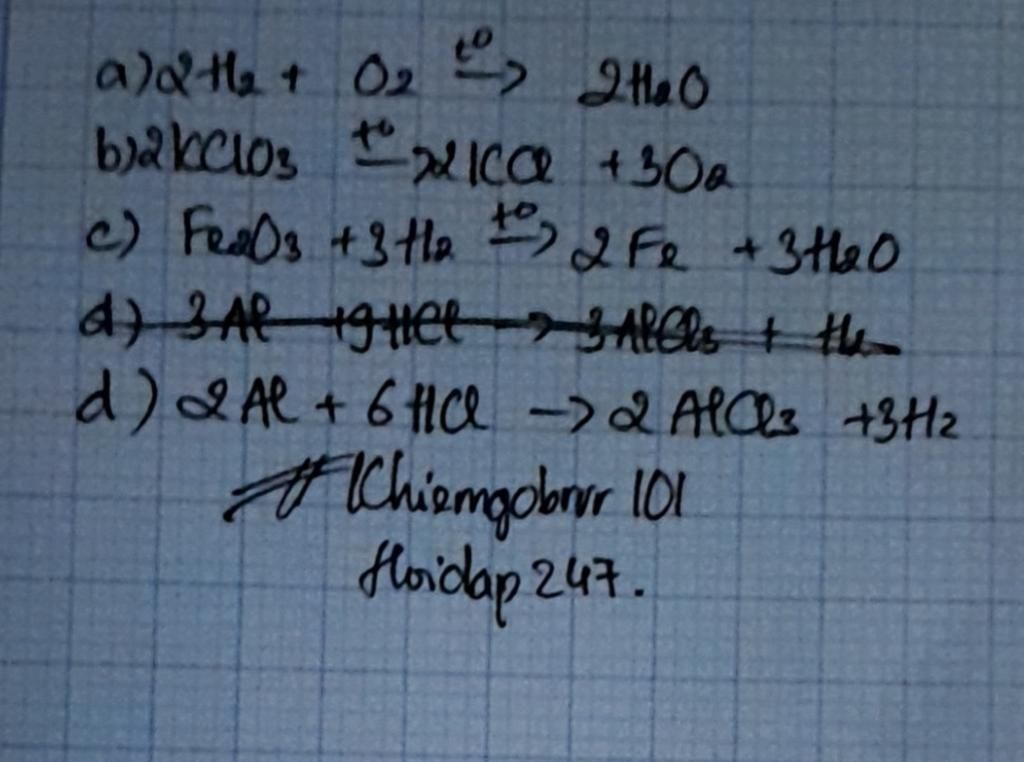 a) 2H₂ + O₂ t⁰→ 2H₂O
b) 2KClO₃ t⁰→ 2KCl + 3O₂
c) Fe₂O₃ + 3H₂ t⁰→ 2Fe + 3H₂O
d) 3Al + 9HCl → 3AlCl₃ + H₂
d) 2Al + 6HCl → 2AlCl₃ + 3H₂
# Khiemgobrvr 101
Hoidap247.